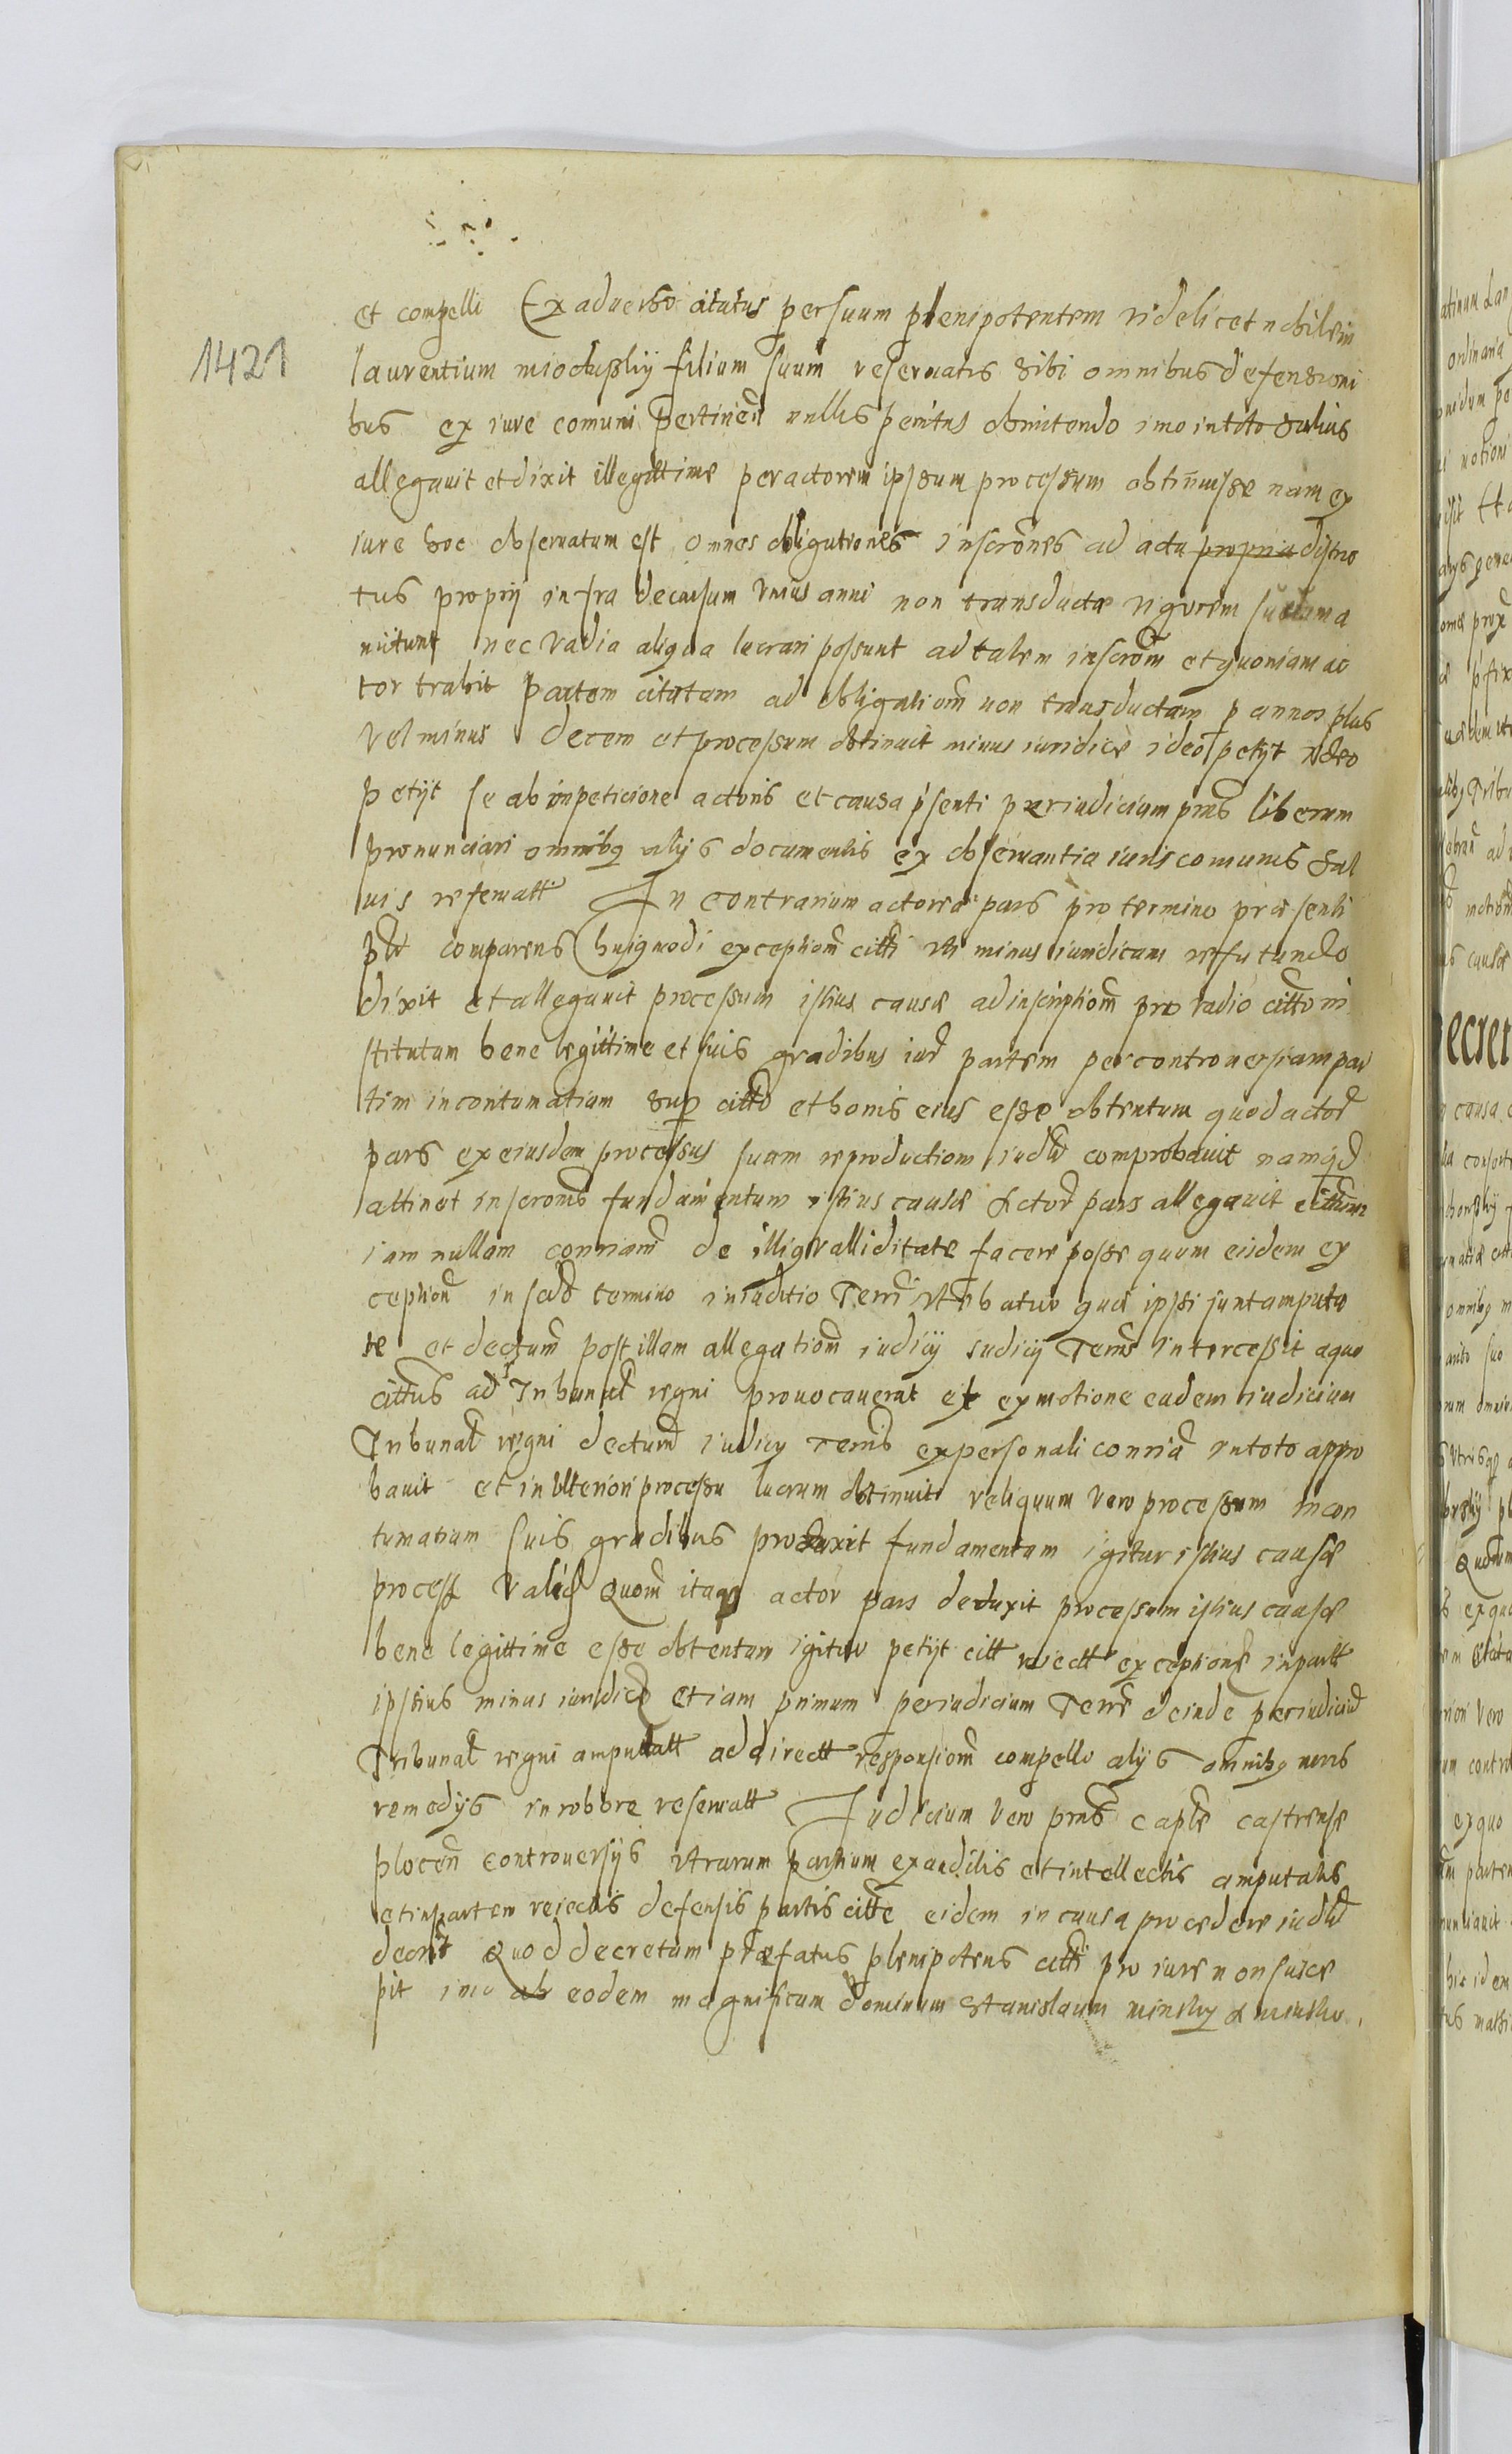 1421
et compelli Ex aduerso citatus per suum plenipotentem videlicet nobilem
laurentium mioduskij filium suum reseruatis sibi omnibus defensioni
bus ex iure comuni pertinen nullis penitus obmittendo imo in toto saluis
allegauit et dixit illegittime per actorem ipsum processum obtinuisse nam ex
iure hoc obseruatum est omnes obligationes inscrones ad acta propria distric
tus proprij infra decursum vnius anni non transductæ vigorem suum a
mittunt nec vadia aliqua lucrari possunt ad talem inscrom et quoniam ac
tor trahit partem citatam ad obligationm non transductam p annos plus
vel minus decem et processum obtinuit minus iuridice ideo petijt ideo
petijt se ab inpeticione actoris et causa psenti per iudicium pns liberum
pronunciari omnibq alijs documentis ex obseruantia iuris comunis sal
uis reseruatt In contrarium actorea pars pro termino præsenti
ptt comparens huigmodi exceptionm citti vti minus iuridicam refutando
dixit et allegauit processum istius causæ ad inscriptionm pro vadio citto in
stitutum bene legittime et suis gradibus iurd partem per controuersiam par
tim in contumatiam sup citto et bonis eius esse obtentum quod actor
pars ex eiusdem processus suam reproductiom iudtt comprobauit namqd
attinet inscronis fundamentum istius causæ Actor pars allegauit cittum
iam nullam conriam de illig validitate facere posse quum eisdem ex
ception in scdo termino in iuditio Terri vtebatur quæ ipsi sunt amputa
tæ et dectum post illam allegationm iudicij iudicij Terris intercessit a quo
cittus ad Tribunal regni prouocauerat et ex motione eadem iudicium
Tribunal regni dectum iudicij terris ex personali conria in toto appro
bauit et in vlteriori processu lucrum obtinuit reliquum vero processum in con
tumatiam suis gradibus produxit fundamentum igitur istius causæ
process valid Quom itaq actor pars deduxit processum istius causæ
bene legittime esse obtentum igitur petijt citt reiectt exceptions in partt
ipsius minus iuridice etiam primum per iudicium Terre deinde per iudiciu
Tribunal regni amputatt ad directt responsionm compelli alijs omnibq iuris
remedijs in robore reseruatt Iudicium vero pns caple castrense
plocen controuersijs vtrarum partium exauditis et intellectis amputatis
et in partem reiectis defensis partis citte eidem in causa procedere iudtt
decrit Quod decretum præfatus plenipotens citti pro iure non susce
pit imo ab eodem magnificum dominum Stanislaum minsky de minsko